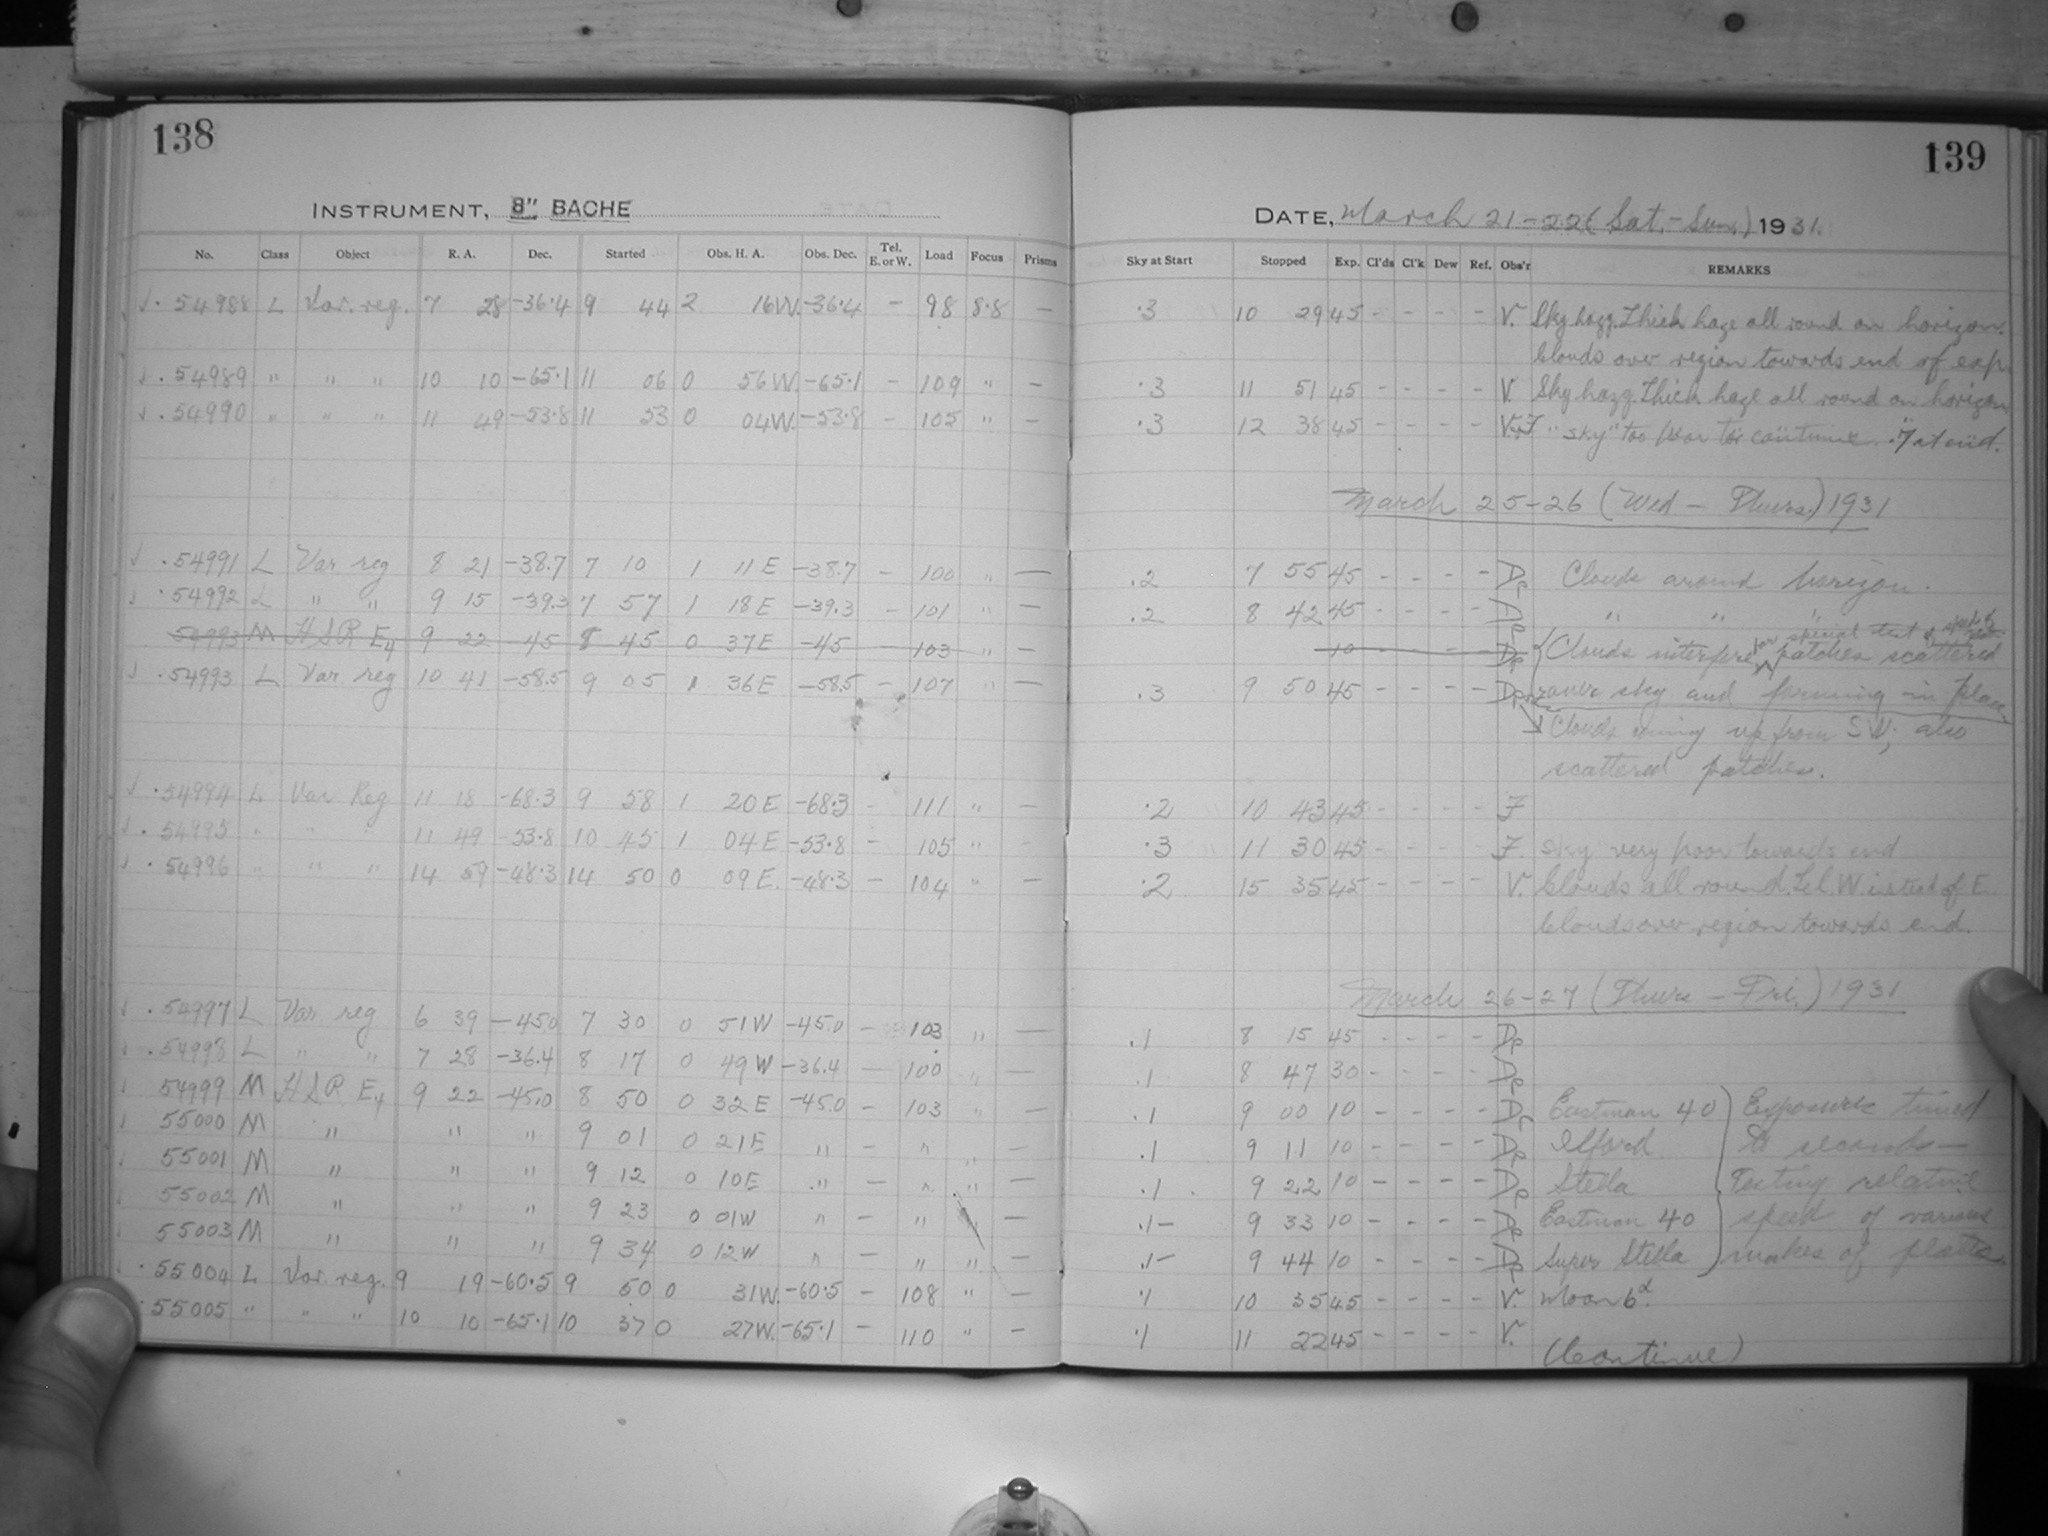 138
INSTRUMENT, 8" BACHE
No. Class Object R. A. Dec. Started Obs. H. A. Obs. Dec. Tel. E. or W. Load Focus Prisms
√ . 54988 L Var. reg. 7 28 -36.4 9 44 2 16W. -36.4 - 98 8.8 -
√ . 54989 " " " 10 10 -65.1 11 06 0 56W -65.1 - 109 " -
√ . 54990 " " " 11 49 -53.8 11 53 0 04W. -53.8 - 105 " -
√ . 54991 L Var reg 8 21 -38.7 7 10 1 11 E -38.7 - 100 " -
√ . 54992 L " " 9 15 -39.3 7 57 1 18 E -39.3 - 101 " -
54993 M HSR E4 9 22 -45 8 45 0 37 E -45 - 103 " -
√ . 54993 L Var reg 10 41 -58.5 9 05 1 36 E -58.5 - 107 " -
√ . 54994 L Var Reg 11 18 -68.3 9 58 1 20 E -68.3 - 111 " -
√ . 54995 " " " 11 49 -53.8 10 45 1 04 E -53.8 - 105 " -
√ . 54996 " " " 14 59 -48.3 14 50 0 09 E. -48.3 - 104 " -
√ . 54997 L Var reg 6 39 -45.0 7 30 0 51 W -45.0 - 103 " -
√ . 54998 L " " 7 28 -36.4 8 17 0 49 W -36.4 - 100 " -
√ 54999 M HSR E4 9 22 -45.0 8 50 0 32 E -45.0 - 103 " -
√ 55000 M " " " 9 01 0 21 E " - " " -
√ 55001 M " " " 9 12 0 10 E " - " " -
√ 55002 M " " " 9 23 0 01 W " - " " -
55003 M " " " 9 34 0 12 W " - " " -
. 55004 L Var. reg. 9 19 -60.5 9 50 0 31W. -60.5 - 108 " -
. 55005 " " " 10 10 -65.1 10 37 0 27W. -65.1 - 110 " -
139
DATE, March 21-22 (Sat. - Sun.) 1931.
Sky at Start Stopped Exp. Cl'ds Cl'k Dew Ref. Obs'r REMARKS
.3 10 29 45 - - - - V. Sky hazy. Thick haze all round on horizon.
Clouds over region towards end of exp.
.3 11 51 45 - - - - V. Sky hazy. Thick haze all round on horizon
.3 12 38 45 - - - - V+F "Sky" too poor to continue. .7 at end.
March 25-26 (Wed - Thurs.) 1931
.2 7 55 45 - - - - De Clouds around horizon.
.2 8 42 45 - - - - De " " "
10 - - De Clouds interfere for special test of speed of plates. patches scattered
.3 9 50 45 - - - - De over sky and forming in place
Clouds coming up from SW; also
scattered patches.
.2 10 43 45 - - - - F
.3 11 30 45 - - - - F. Sky very poor towards end
.2 15 35 45 - - - - V. Clouds all round. Tel. W instead of E
Clouds over region towards end.
March 26-27 (Thurs - Fri.) 1931
.1 8 15 45 - - - - De
.1 8 47 30 - - - - De
.1 9 00 10 - - - - De Eastman 40 Exposures timed
.1 9 11 10 - - - - De Ilford to seconds -
.1 9 22 10 - - - - De Stella Testing relative
.1- 9 33 10 - - - - De Eastman 40 speed of various
.1- 9 44 10 - - - - De Super Stella makes of plates.
.1 10 35 45 - - - - V. Moon 6d.
.1 11 22 45 - - - - V.
(Continue)